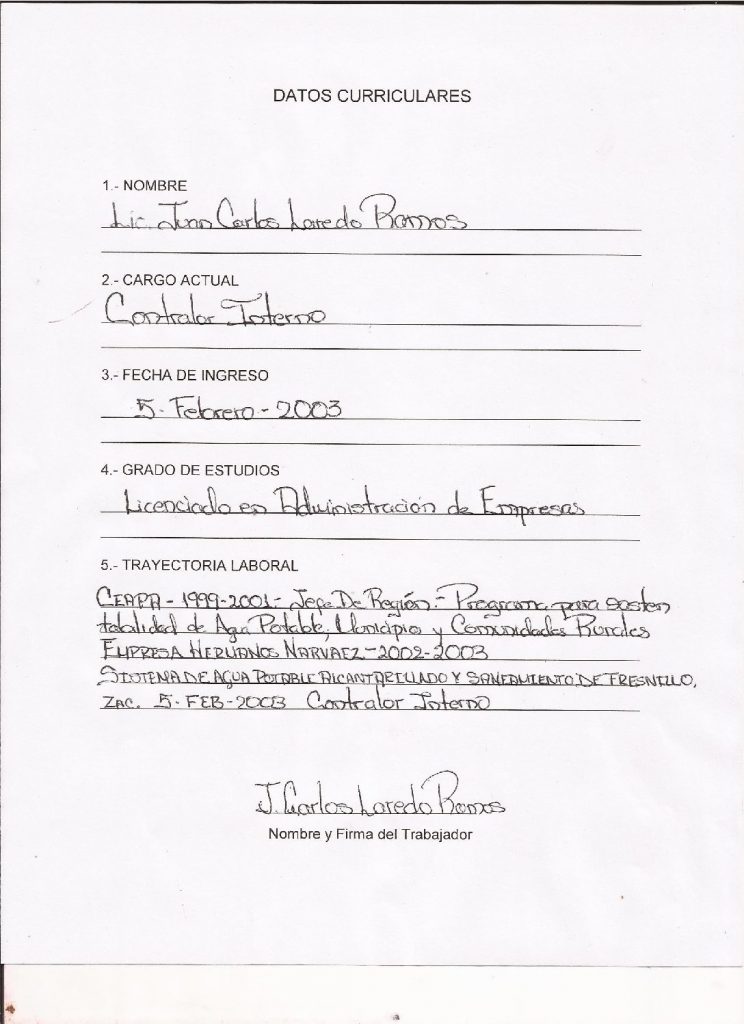 DATOS CURRICULARES
1.- NOMBRE
Lic. Juan Carlos Loredo Ramos
2.- CARGO ACTUAL
Contralor Interno
3.- FECHA DE INGRESO
5. Febrero - 2003
4.- GRADO DE ESTUDIOS
Licenciado en Administración de Empresas
5.- TRAYECTORIA LABORAL
CEAPA - 1999-2001 - Jefe De Región - Programa para susten
tabilidad de Agua Potable, Municipio y Comunidades Rurales
EMPRESA HERMANOS NARVAEZ - 2002-2003
SISTEMA DE AGUA POTABLE ALCANTARILLADO Y SANEAMIENTO DE FRESNILLO,
ZAC. 5-FEB-2003 Contralor Interno
J. Carlos Loredo Ramos
Nombre y Firma del Trabajador